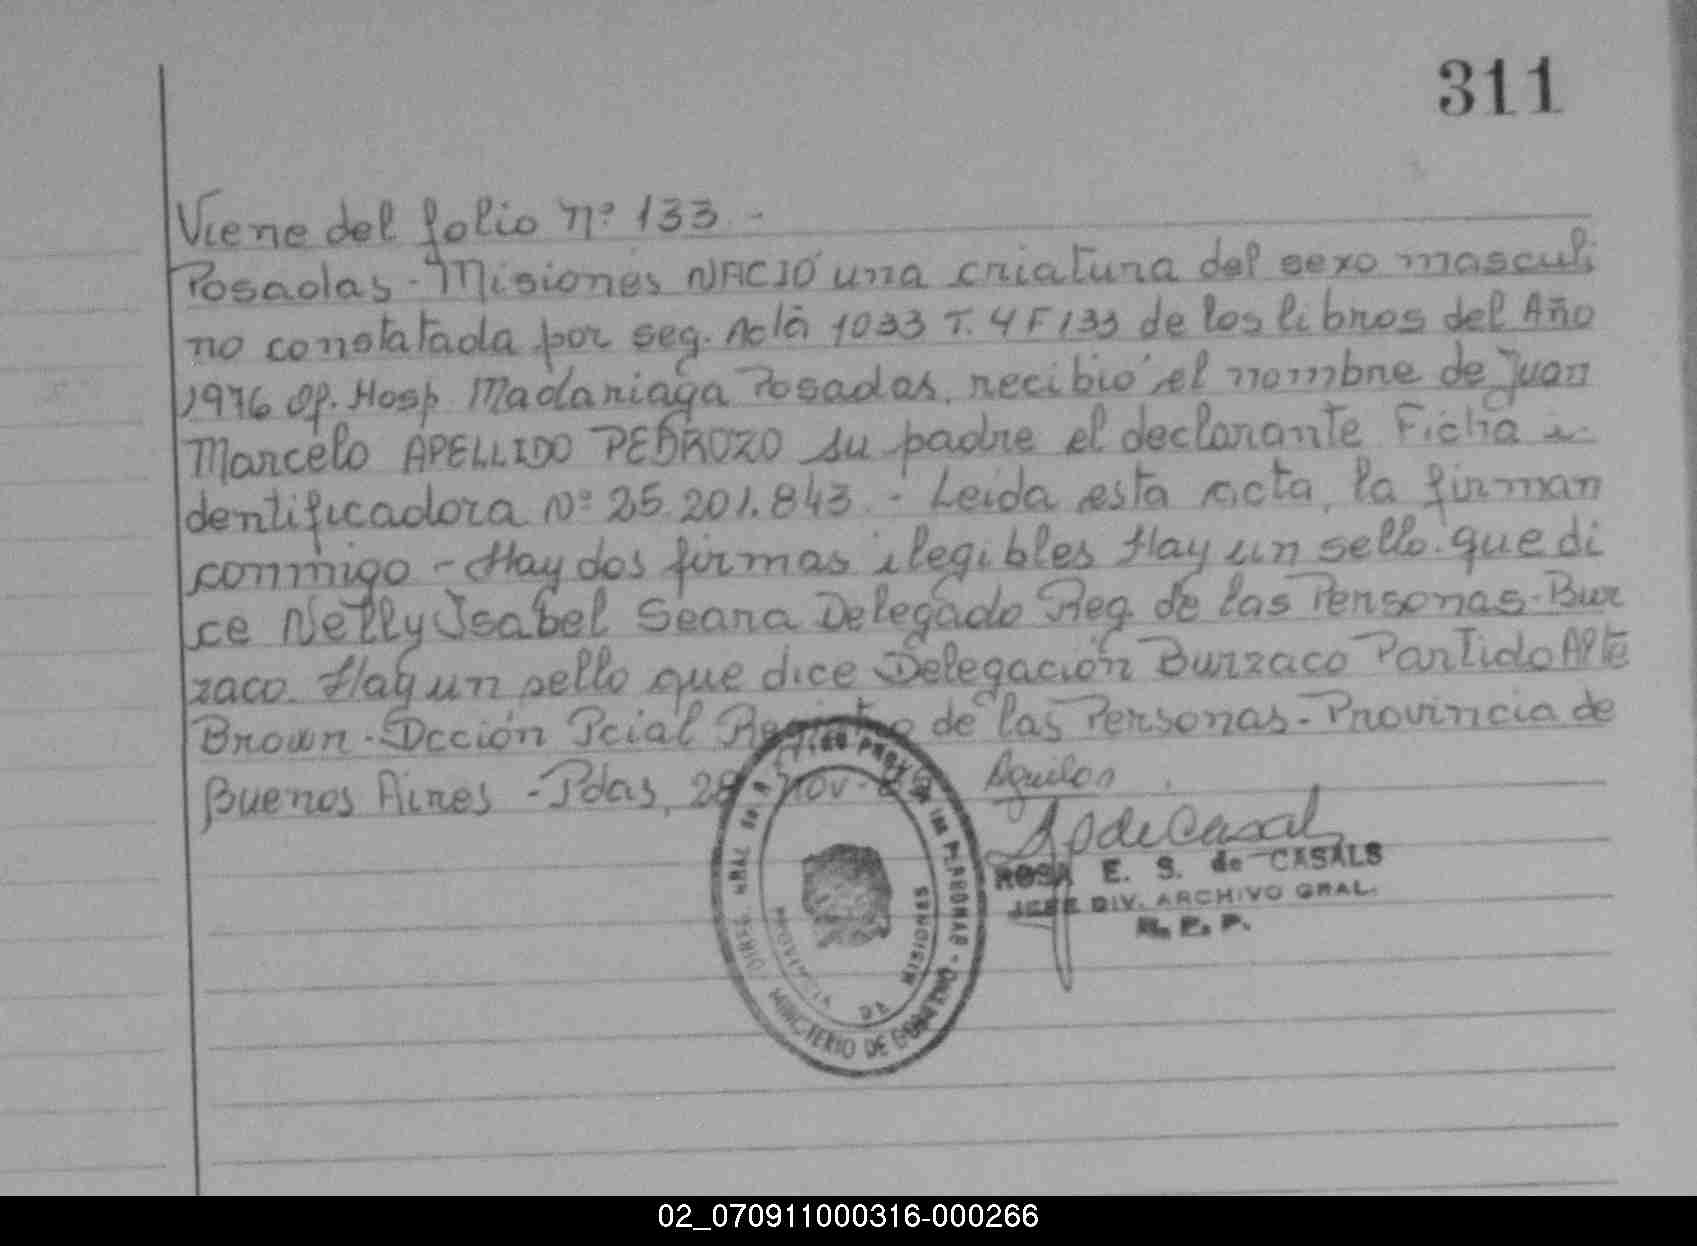 311
Viene del folio nº 133 -
Posadas - Misiones NACIÓ una criatura del sexo masculi
no constatada por seg. Acta 1033 T. 4 F 133 de los libros del Año
1976 Of. Hosp Madariaga Posadas, recibió el nombre de Juan
Marcelo APELLIDO PEDROZO su padre el declarante Ficha i-
dentificadora Nº 25.201.843 - Leida esta acta, la firman
conmigo - Hay dos firmas ilegibles Hay un sello que di
ce Nelly Isabel Seara Delegado Reg. de las Personas - Bur
zaco. Hay un sello que dice Delegación Burzaco Partido Alte
Brown - Dcción Pcial Registro de las Personas - Provincia de
Buenos Aires - Pdas, 28 Nov -
ROSA E. S. de CASALS
JEFE DIV. ARCHIVO GRAL.
R. P. P.
MINISTERIO DE GOBIERNO
PROVINCIA DE MISIONES
02_070911000316-000266